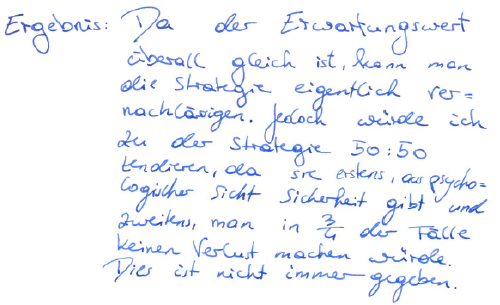 Ergebnis: Da der Erwartungswert
überall gleich ist, kann man
die Strategie eigentlich ver=
nachlässigen. Jedoch würde ich
zu der Strategie 50:50
tendieren, da sie erstens, aus psycho=
logischer Sicht Sicherheit gibt und
zweitens, man in 3/4 der Fälle
keinen Verlust machen würde.
Dies ist nicht immer gegeben.